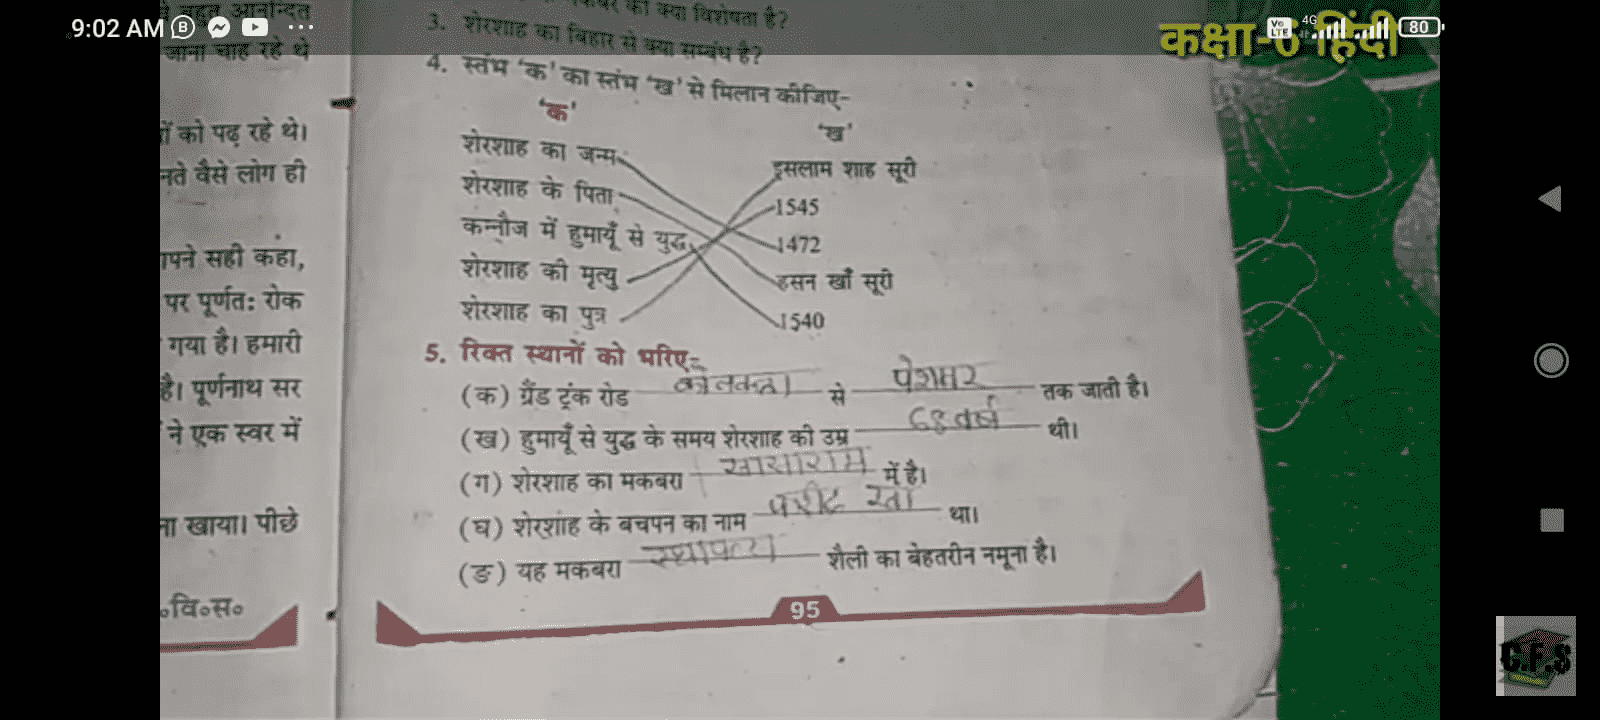 9:02 AM
4G
80
कक्षा-6 हिंदी
बहुत आनन्दित
जाना चाह रहे थे
को पढ़ रहे थे।
नते वैसे लोग ही
पने सही कहा,
पर पूर्णतः रोक
गया है। हमारी
है। पूर्णनाथ सर
ने एक स्वर में
ना खाया। पीछे
॰वि॰स॰
की क्या विशेषता है?
3. शेरशाह का बिहार से क्या सम्बंध है?
4. स्तंभ 'क' का स्तंभ 'ख' से मिलान कीजिए-
'क' 'ख'
शेरशाह का जन्म इसलाम शाह सूरी
शेरशाह के पिता 1545
कन्नौज में हुमायूँ से युद्ध 1472
शेरशाह की मृत्यु हसन खाँ सूरी
शेरशाह का पुत्र 1540
5. रिक्त स्थानों को भरिए-
(क) ग्रैंड ट्रंक रोड कोलकता से तक जाती है।
(ख) हुमायूँ से युद्ध के समय शेरशाह की उम्र 68 वर्ष थी।
(ग) शेरशाह का मकबरा सासाराम में है।
(घ) शेरशाह के बचपन का नाम फरीद खाँ था।
(ङ) यह मकबरा स्थापत्य शैली का बेहतरीन नमूना है।
95
C.F.S